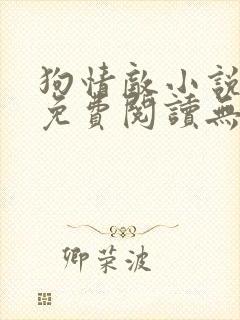 狗情敵小說
免費閱讀無
卿荣波